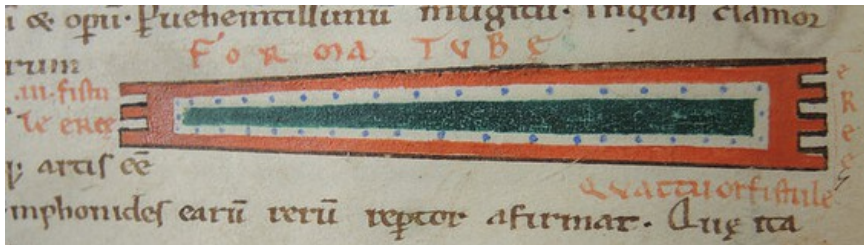 i & opū· Ꝑuehemtillunū mugitū· Ingeni clamor
FORMA TVBĘ
rum
.iii. fistu
le ereę
ereę
ꝙ artis eē
Quattuor fistule
mphonides earū rerū reꝑtor afirmat· Quę ita